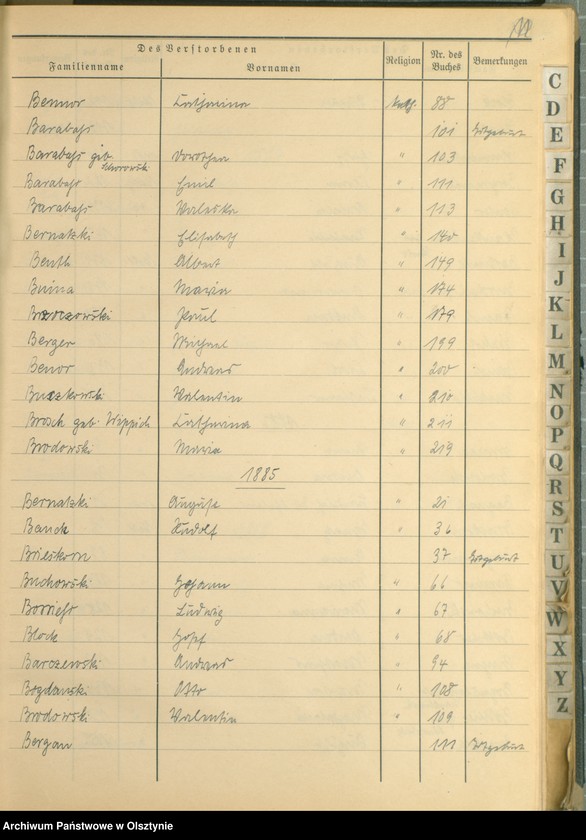 11
Des Verstorbenen
Familienname Vornamen Religion Nr. des Buches Bemerkungen
Bennor Catharina kath. 88
Barabasch 101 Totgeburt
Barabasch geb. Dorothea " 103
Barabasch Emil " 111
Barabasch Valeska " 113
Bernatzki Elisabeth " 140
Benth Albert " 149
Buina Maria " 174
Brzozowski Paul " 179
Berger Michael " 199
Benor Andreas " 200
Buczkowski Valentin " 210
Brosch geb. Wippich Catharina " 211
Brodowski Maria " 219
1885
Bernatzki August " 21
Banck Rudolf " 36
Brieskorn 37 Totgeburt
Buchowski Johann " 66
Ludwig " 67
Block Josef " 68
Barczewski Andreas " 94
Bogdanski Otto " 108
Brodowski Valentin " 109
Bergan 111 Totgeburt
C
D
E
F
G
H
I
J
K
L
M
N
O
P
Q
R
S
T
U
V
W
X
Y
Z
Archiwum Państwowe w Olsztynie